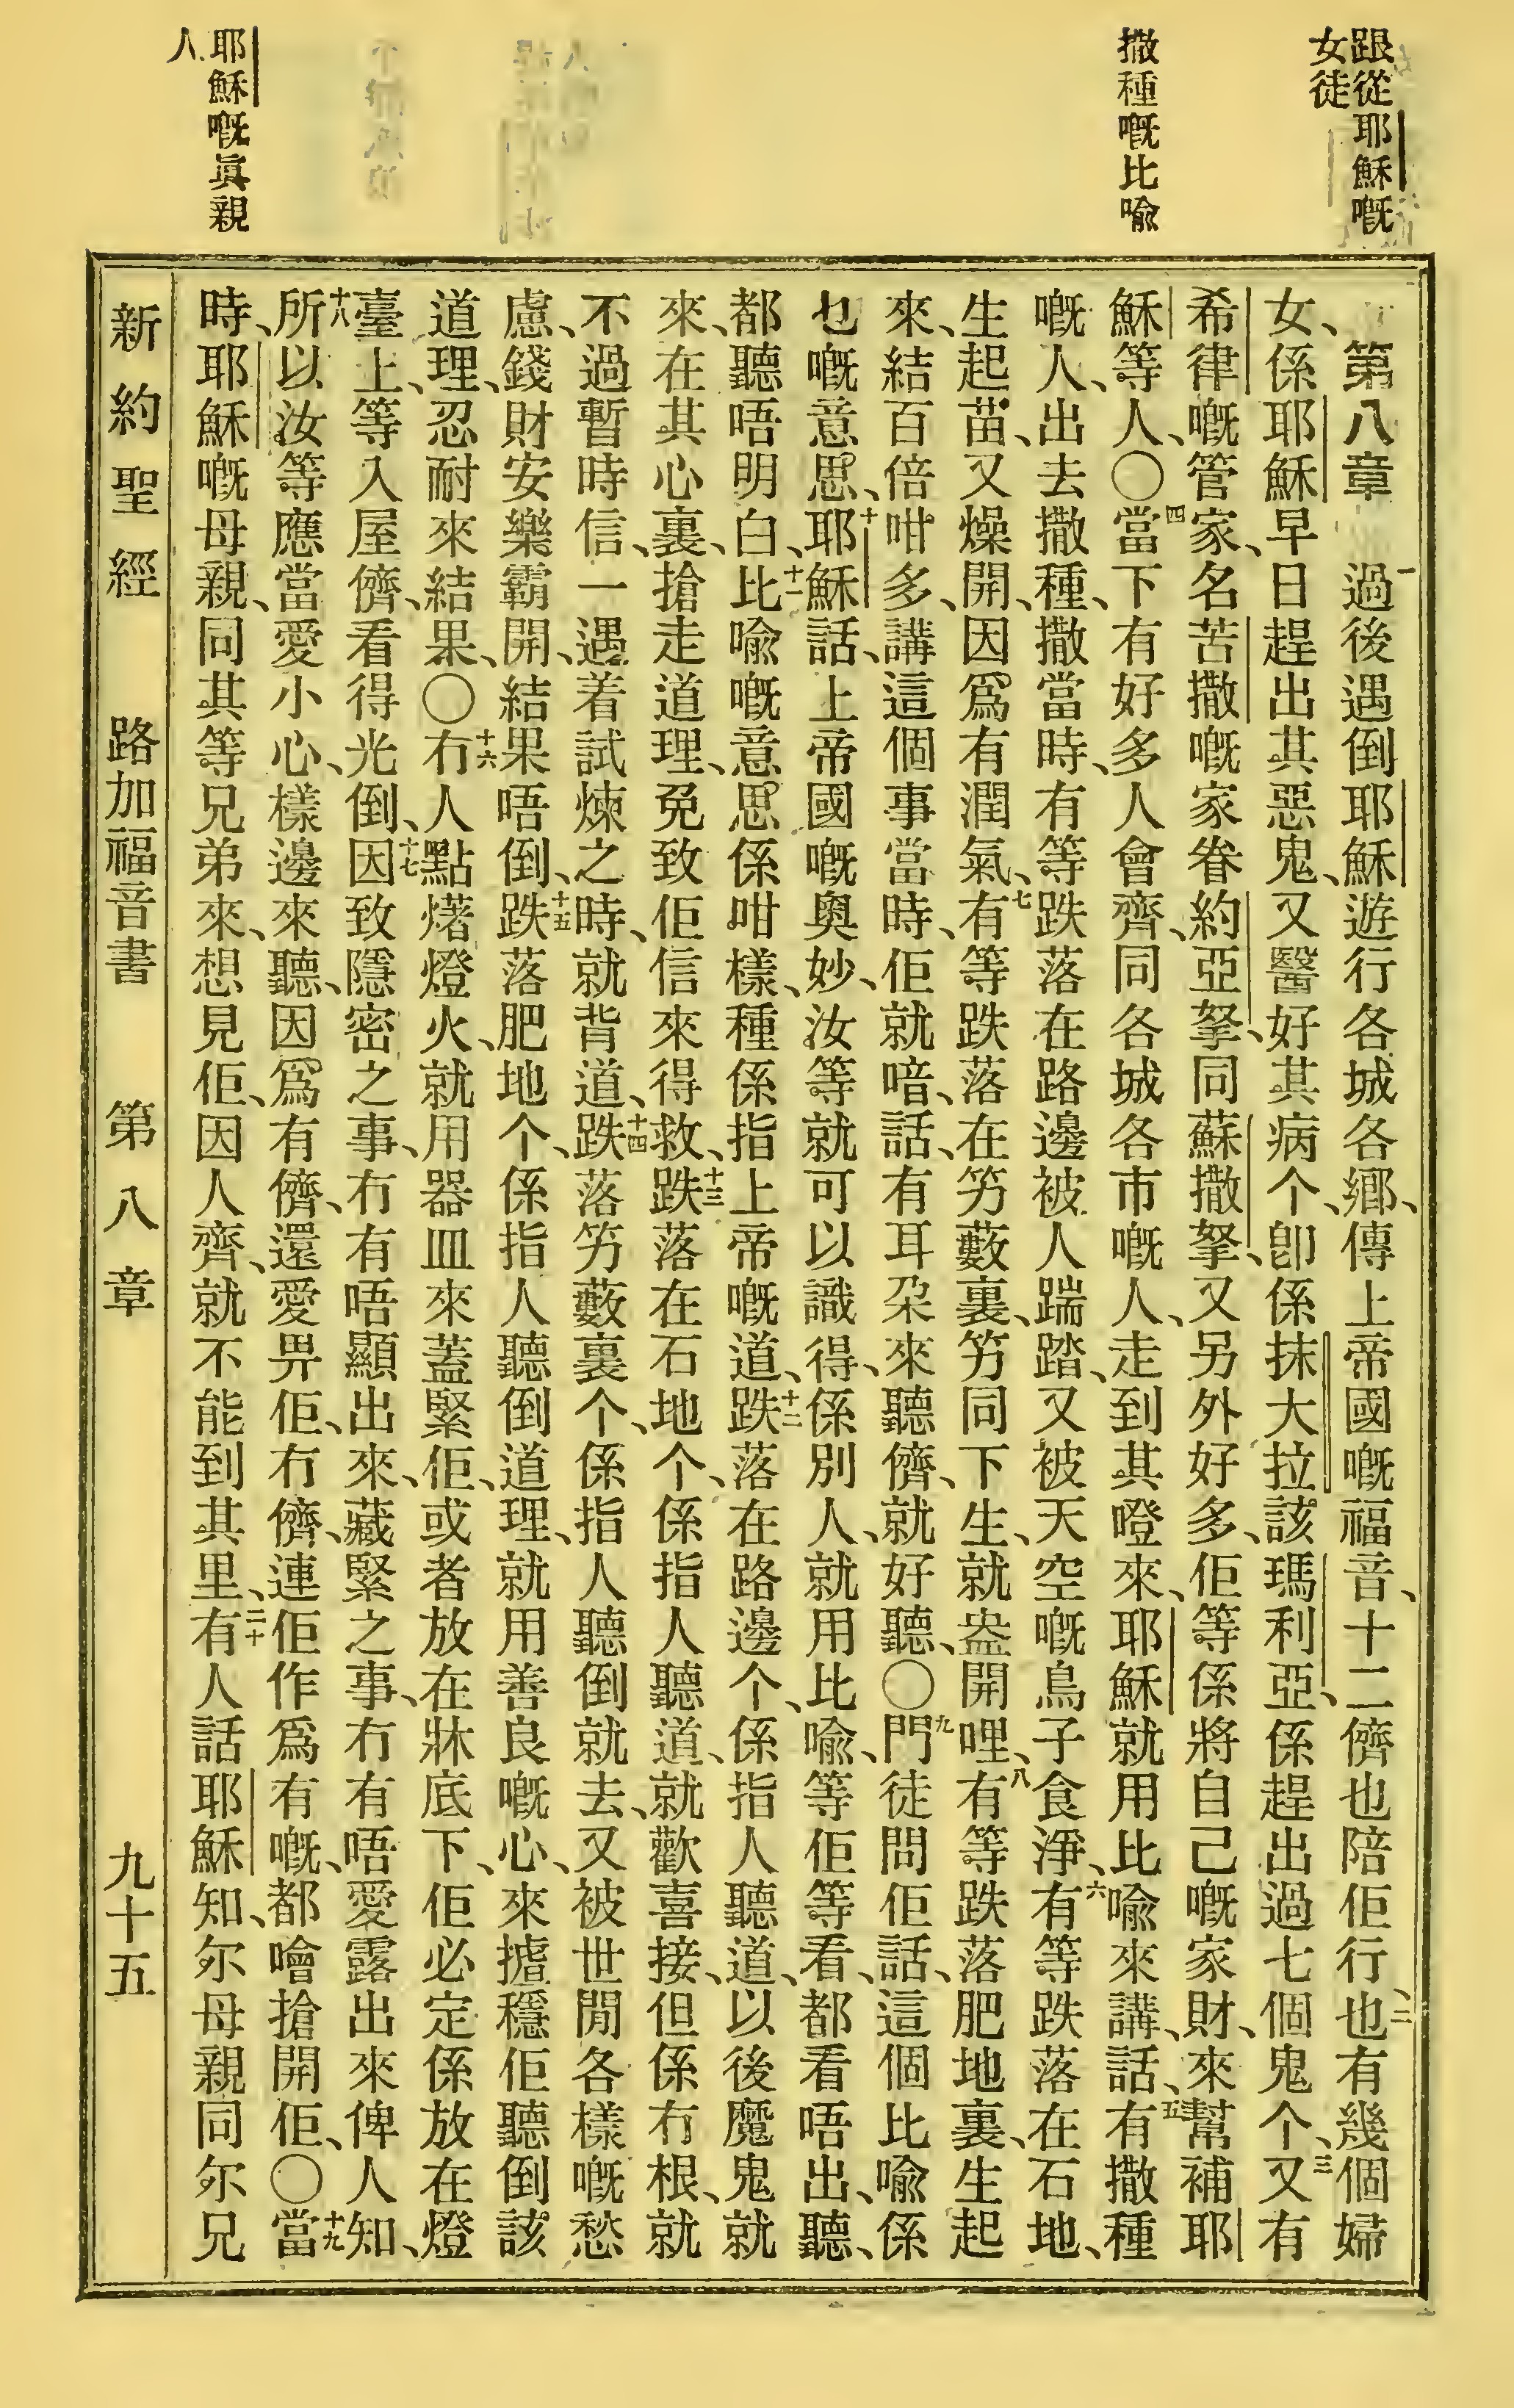 跟從耶穌嘅
女徒
撒種嘅比喻
耶穌嘅眞親
人
第八章 一過後遇倒耶穌遊行各城各鄕、傳上帝國嘅福音、十二儕也陪佢行、二也有幾個婦
女、係耶穌早日趕出其惡鬼、又醫好其病个、卽係抹大拉該瑪利亞、係趕出過七個鬼个、三又有
希律嘅管家、名苦撒嘅家眷約亞拏、同蘇撒拏、又另外好多、佢等係將自己嘅家財、來幫補耶
穌等人、〇四當下有好多人會齊、同各城各市嘅人、走到其噔來、耶穌就用比喻來講、話、五有撒種
嘅人、出去撒種、撒當時、有等跌落在路邊被人踹踏、又被天空嘅鳥子食淨、六有等跌落在石地、
生起苗、又燥開、因爲有潤氣、七有等跌落在竻藪裏、竻同下生、就盎開哩、八有等跌落肥地裏、生起
來、結百倍咁多、講這個事當時、佢就喑、話、有耳朶來聽儕、就好聽、〇九門徒問佢話、這個比喻係
乜嘅意思、十耶穌話、上帝國嘅奧妙、汝等就可以識得、係別人、就用比喻、等佢等看、都看唔出、聽、
都聽唔明白、十一比喻嘅意思係咁樣、種係指上帝嘅道、十二跌落在路邊个、係指人聽道、以後魔鬼就
來、在其心裏、搶走道理、免致佢信來得救、十三跌落在石地个、係指人聽道、就歡喜接、但係冇根、就
不過暫時信、一遇着試煉之時、就背道、十四跌落竻藪裏个、係指人聽倒就去、又被世間各樣嘅愁
慮、錢財安樂霸開、結果唔倒、十五跌落肥地个、係指人聽倒道理、就用善良嘅心、來摣穩佢聽倒該
道理、忍耐來結果、〇十六冇人點㷮燈火、就用器皿來蓋緊佢、或者放在牀底下、佢必定係放在燈
臺上、等入屋儕、看得光倒、十七因致隱密之事、冇有唔顯出來、藏緊之事、冇有唔愛露出來俾人知、
十八所以汝等應當愛小心、樣邊來聽、因爲有儕、還愛畀佢、冇儕、連佢作爲有嘅、都噲搶開佢、〇十九當
時、耶穌嘅母親、同其等兄弟來、想見佢、因人齊、就不能到其里、二十有人話耶穌知、尔母親同尔兄
新約聖經 路加福音書 第八章 九十五